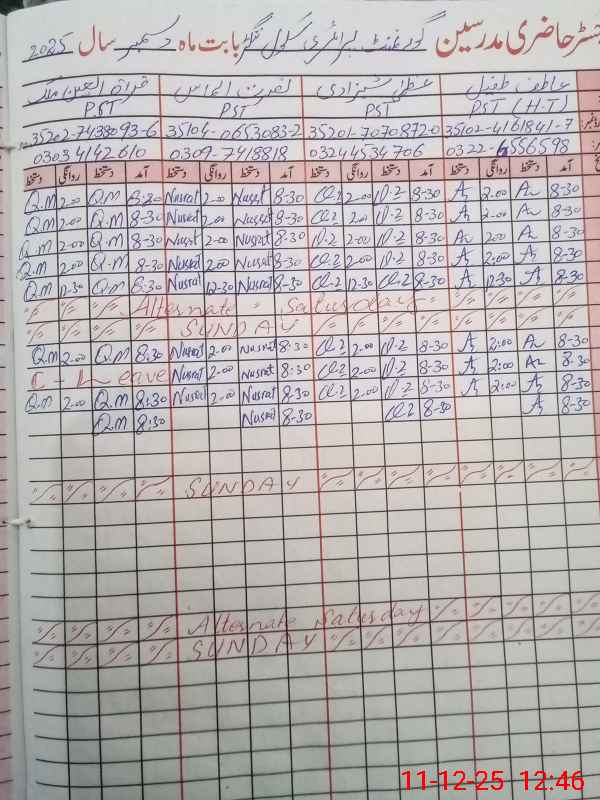 رجسٹر حاضری مدرسین گورنمنٹ پرائمری سکول بابت ماہ دسمبر سال 2025
عاطف طفیل عظمیٰ شہزادی نصرت الماس قراۃ العین ملک
PST (H.T) PST PST PST
35102-4161841-7 35201-7070872-0 35104-0653083-2 35202-7438093-6
0322-6556598 03244534706 0309-7418818 03034142610
آمد دستخط روانگی دستخط آمد دستخط روانگی دستخط آمد دستخط روانگی دستخط آمد دستخط روانگی دستخط
Q.M 2.00 Q.M 8:30 Nusrat 2.00 Nusrat 8:30 2.00 8-30 2.00 8-30
Q.M 2.00 Q.M 8-30 Nusrat 2.00 Nusrat 8-30 2.00 8-30 2.00 8-30
Q.M 2.00 Q.M 8-30 Nusrat 2.00 Nusrat 8-30 2.00 8-30 2.00 8-30
Q.M 2.00 Q.M 8-30 Nusrat 2.00 Nusrat 8-30 2.00 8-30 2.00 8-30
Q.M 12.30 Q.M 8:30 Nusrat 12-30 Nusrat 8-30 12-30 8-30 12.30 8-30
Alternate Saturday
SUNDAY
Q.M 2.00 Q.M 8:30 Nusrat 2.00 Nusrat 8:30 2.00 8-30 2:00 8-30
C - Leave Nusrat 2.00 Nusrat 8:30 2.00 8-30 2:00 8:30
Q.M 2.00 Q.M 8:30 Nusrat 2.00 Nusrat 8-30 2.00 8-30 2:00 8-30
Q.M 8:30 Nusrat 8-30 8-30 8-30
SUNDAY
Alternate Saturday
SUNDAY
11-12-25 12:46